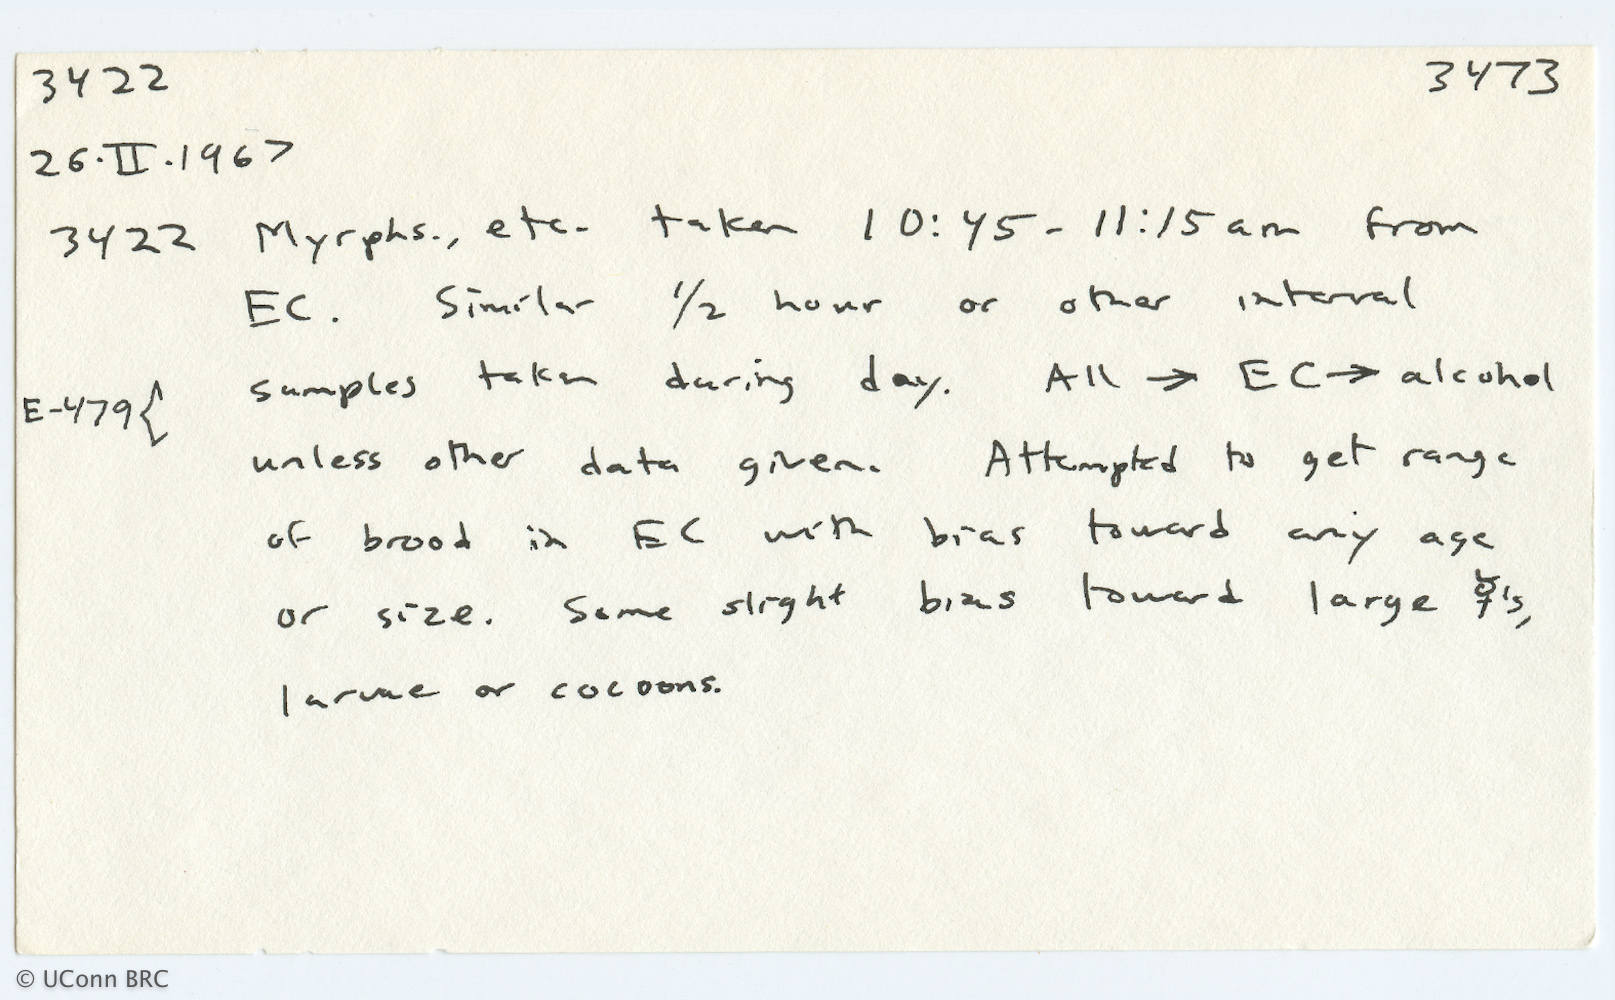 3422 3473
26.II.1967
3422 Myrphs., etc. taken 10:45-11:15am from
EC. Similar 1/2 hour or other interval
samples taken during day. All → EC → alcohol
E-479{
unless other data given. Attempted to get range
of brood in EC with bias toward any age
or size. Some slight bias toward large ☿'s,
larvae or cocoons.
© UConn BRC